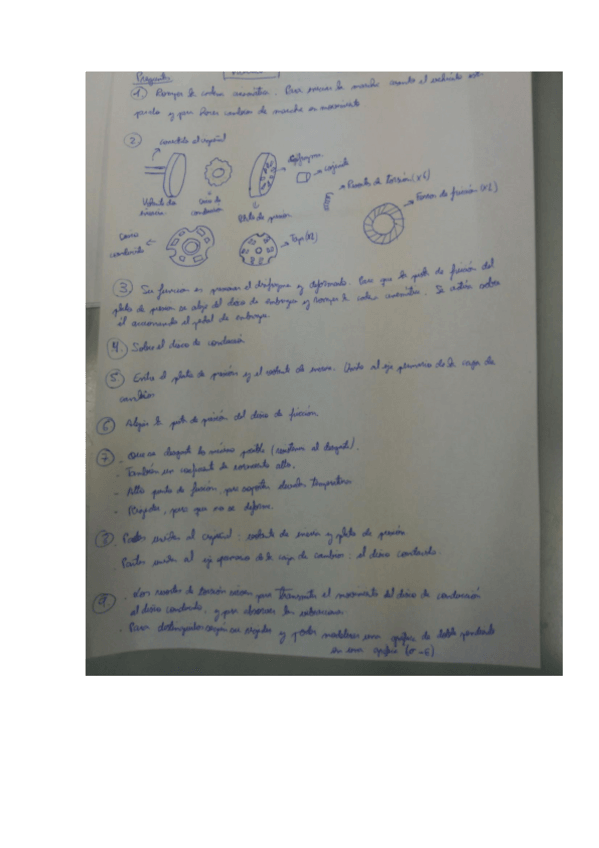 Preguntas
1) Romper la cadena cinemática. Para iniciar la marcha cuando el vehículo está
parado y para hacer cambios de marcha en movimiento
2)
conectado al cigüeñal
diafragma
cojinete
Muelle de torsión (x6)
Forros de fricción (x2)
Volante de inercia
Disco de conducción
Plato de presión
Disco conducido
Tapa (x2)
3) Su función es presionar el diafragma y deformarlo. Para que la pista de fricción del
plato de presión se aleje del disco de embrague y rompa la cadena cinemática. Se actúa sobre
él accionando el pedal de embrague.
4) Sobre el disco de conducción
5) Entre el plato de presión y el volante de inercia. Unido al eje primario de la caja de
cambios
6) Alejar la pista de presión del disco de fricción
7) - Que se desgaste lo mínimo posible (constante al desgaste).
- También un coeficiente de rozamiento alto.
- Alto punto de fusión, para soportar elevadas temperaturas
- Rígidos, para que no se deforme.
8) Partes unidas al cigüeñal: volante de inercia y plato de presión
. Partes unidas al eje primario de la caja de cambios: el disco conducido
9) . Los muelles de torsión sirven para transmitir el movimiento del disco de conducción
al disco conducido, y para absorber las vibraciones.
. Para y poder modelizar una gráfica de doble pendiente
en una gráfica (σ - ε)